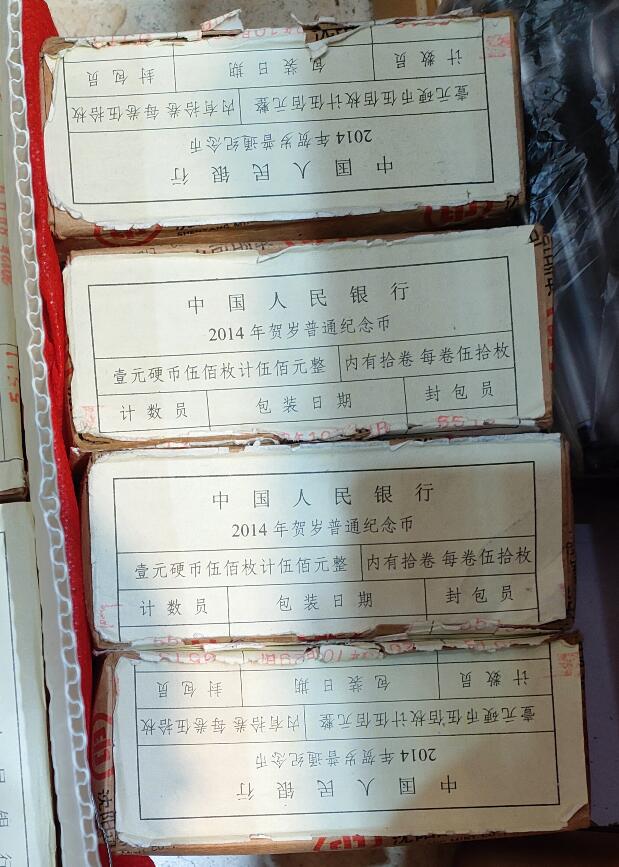 计数员 包装日期 封包员
壹元硬币伍佰枚计伍佰元整 内有拾卷 每卷伍拾枚
2014年贺岁普通纪念币
中国人民银行
中国人民银行
2014年贺岁普通纪念币
壹元硬币伍佰枚计伍佰元整 内有拾卷 每卷伍拾枚
计数员 包装日期 封包员
中国人民银行
2014年贺岁普通纪念币
壹元硬币伍佰枚计伍佰元整 内有拾卷 每卷伍拾枚
计数员 包装日期 封包员
计数员 包装日期 封包员
壹元硬币伍佰枚计伍佰元整 内有拾卷 每卷伍拾枚
2014年贺岁普通纪念币
中国人民银行